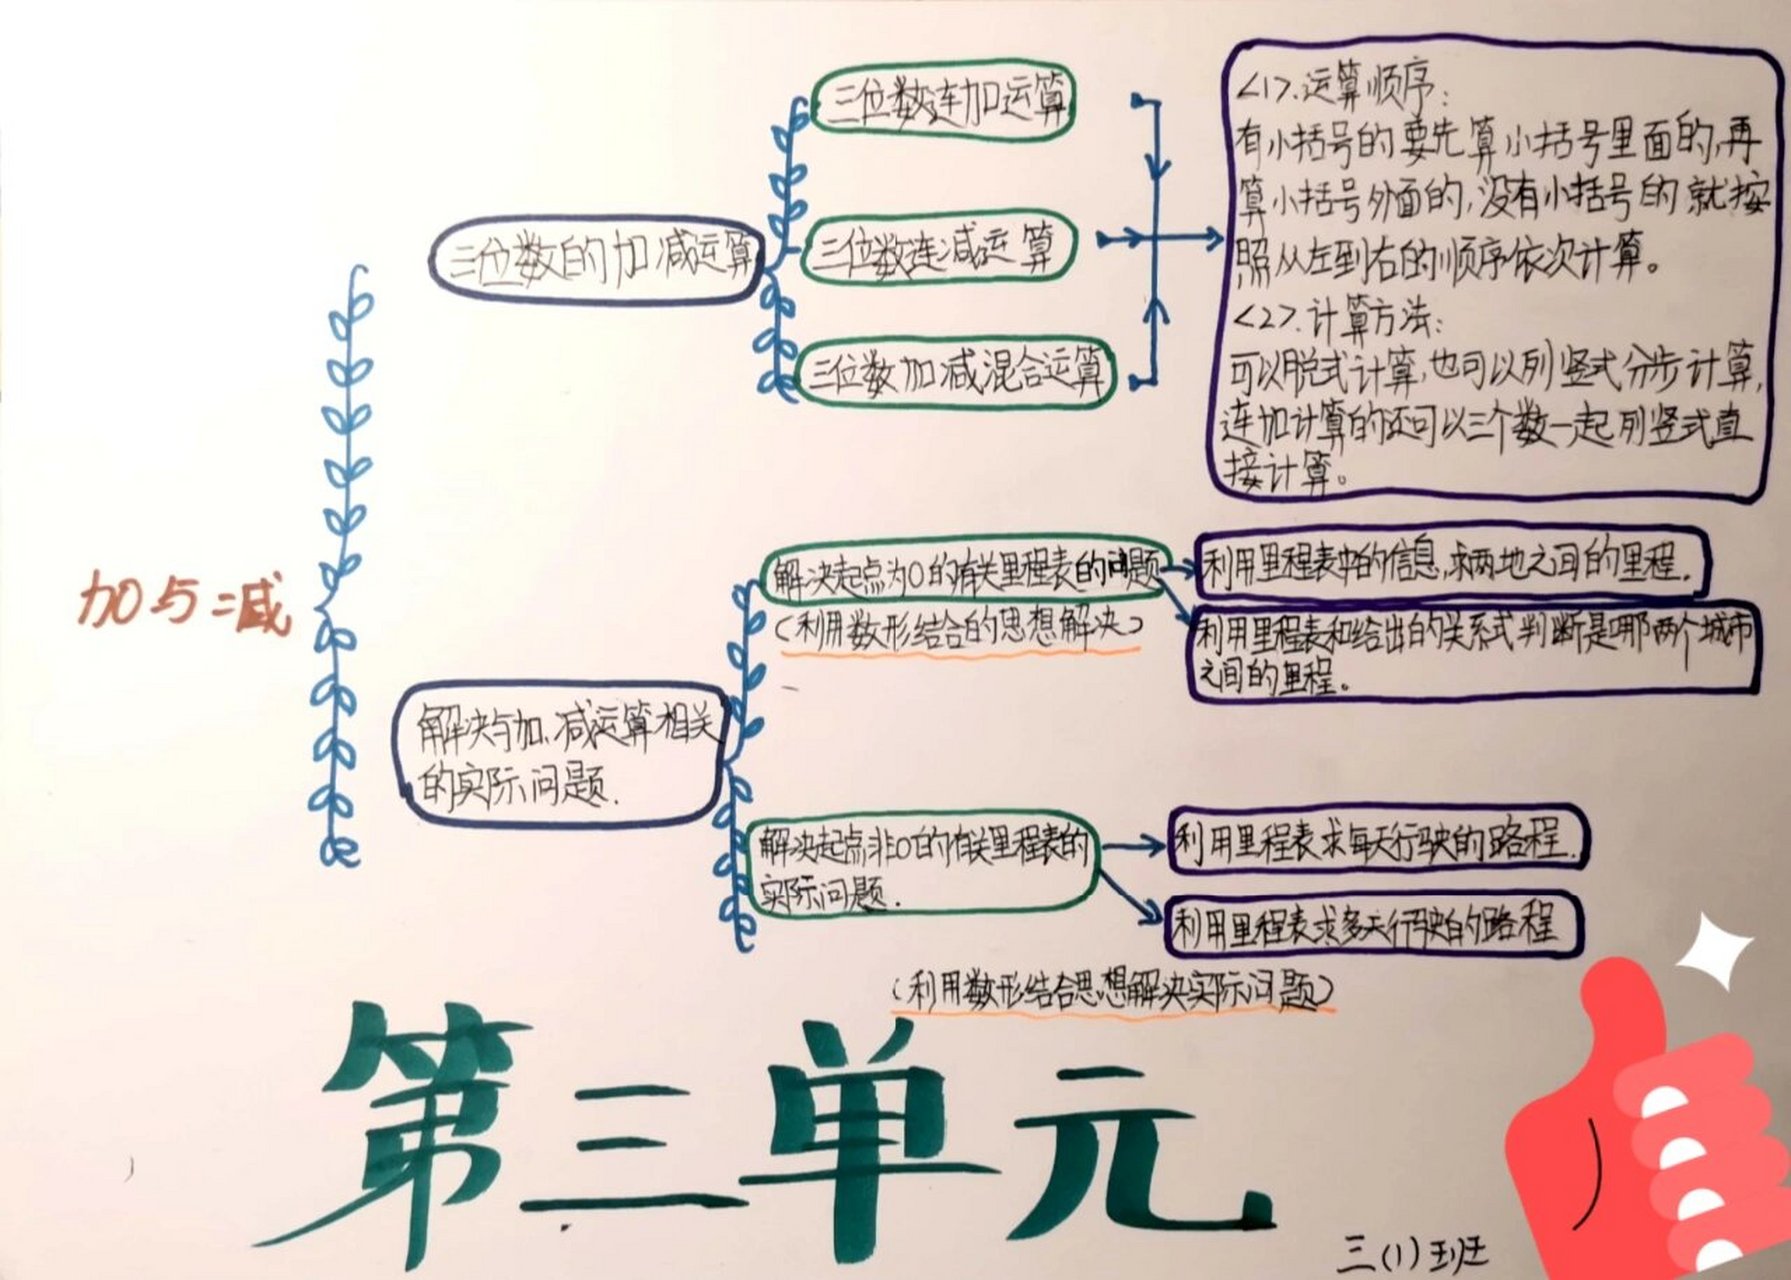 加与减
三位数的加减运算
三位数连加运算
三位数连减运算
三位数加减混合运算
<1>.运算顺序:
有小括号的要先算小括号里面的,再
算小括号外面的,没有小括号的就按
照从左到右的顺序依次计算。
<2>.计算方法:
可以脱式计算,也可以列竖式分步计算,
连加计算的还可以三个数一起列竖式直
接计算。
解决与加、减运算相关
的实际问题.
解决起点为0的有关里程表的问题
(利用数形结合的思想解决)
利用里程表中的信息,求两地之间的里程.
利用里程表和给出的关系式判断是哪两个城市
之间的里程。
解决起点非0的有关里程表的
实际问题.
利用里程表求每天行驶的路程.
利用里程表求多天行驶的路程
(利用数形结合思想解决实际问题)
第三单元
三(1)班